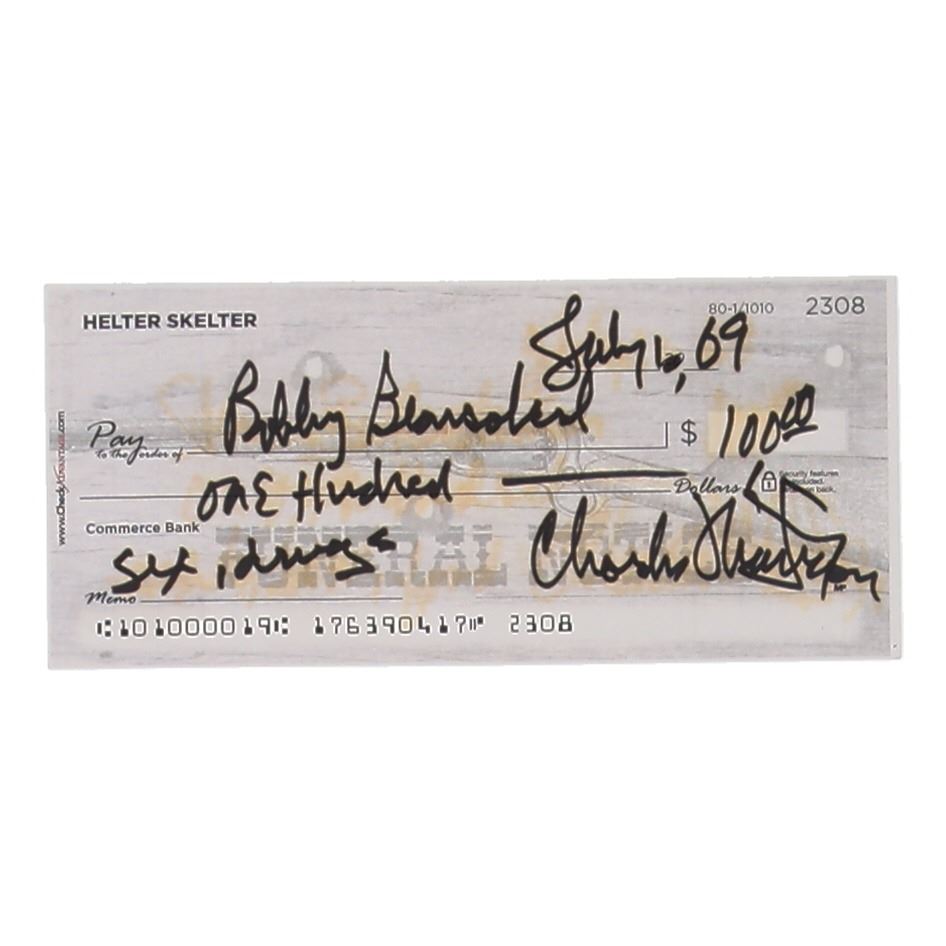 HELTER SKELTER
80-1/1010 2308
July 6, 69
Pay to the order of Bobby Beausoleil $ 100 00
One Hundred Dollars
Security features included. on back.
Commerce Bank
FUNERAL
Memo sex, drugs
Charles Manson
MP
www.CheckAdvantage.com
⑆101000019⑆ 176390417⑈ 2308